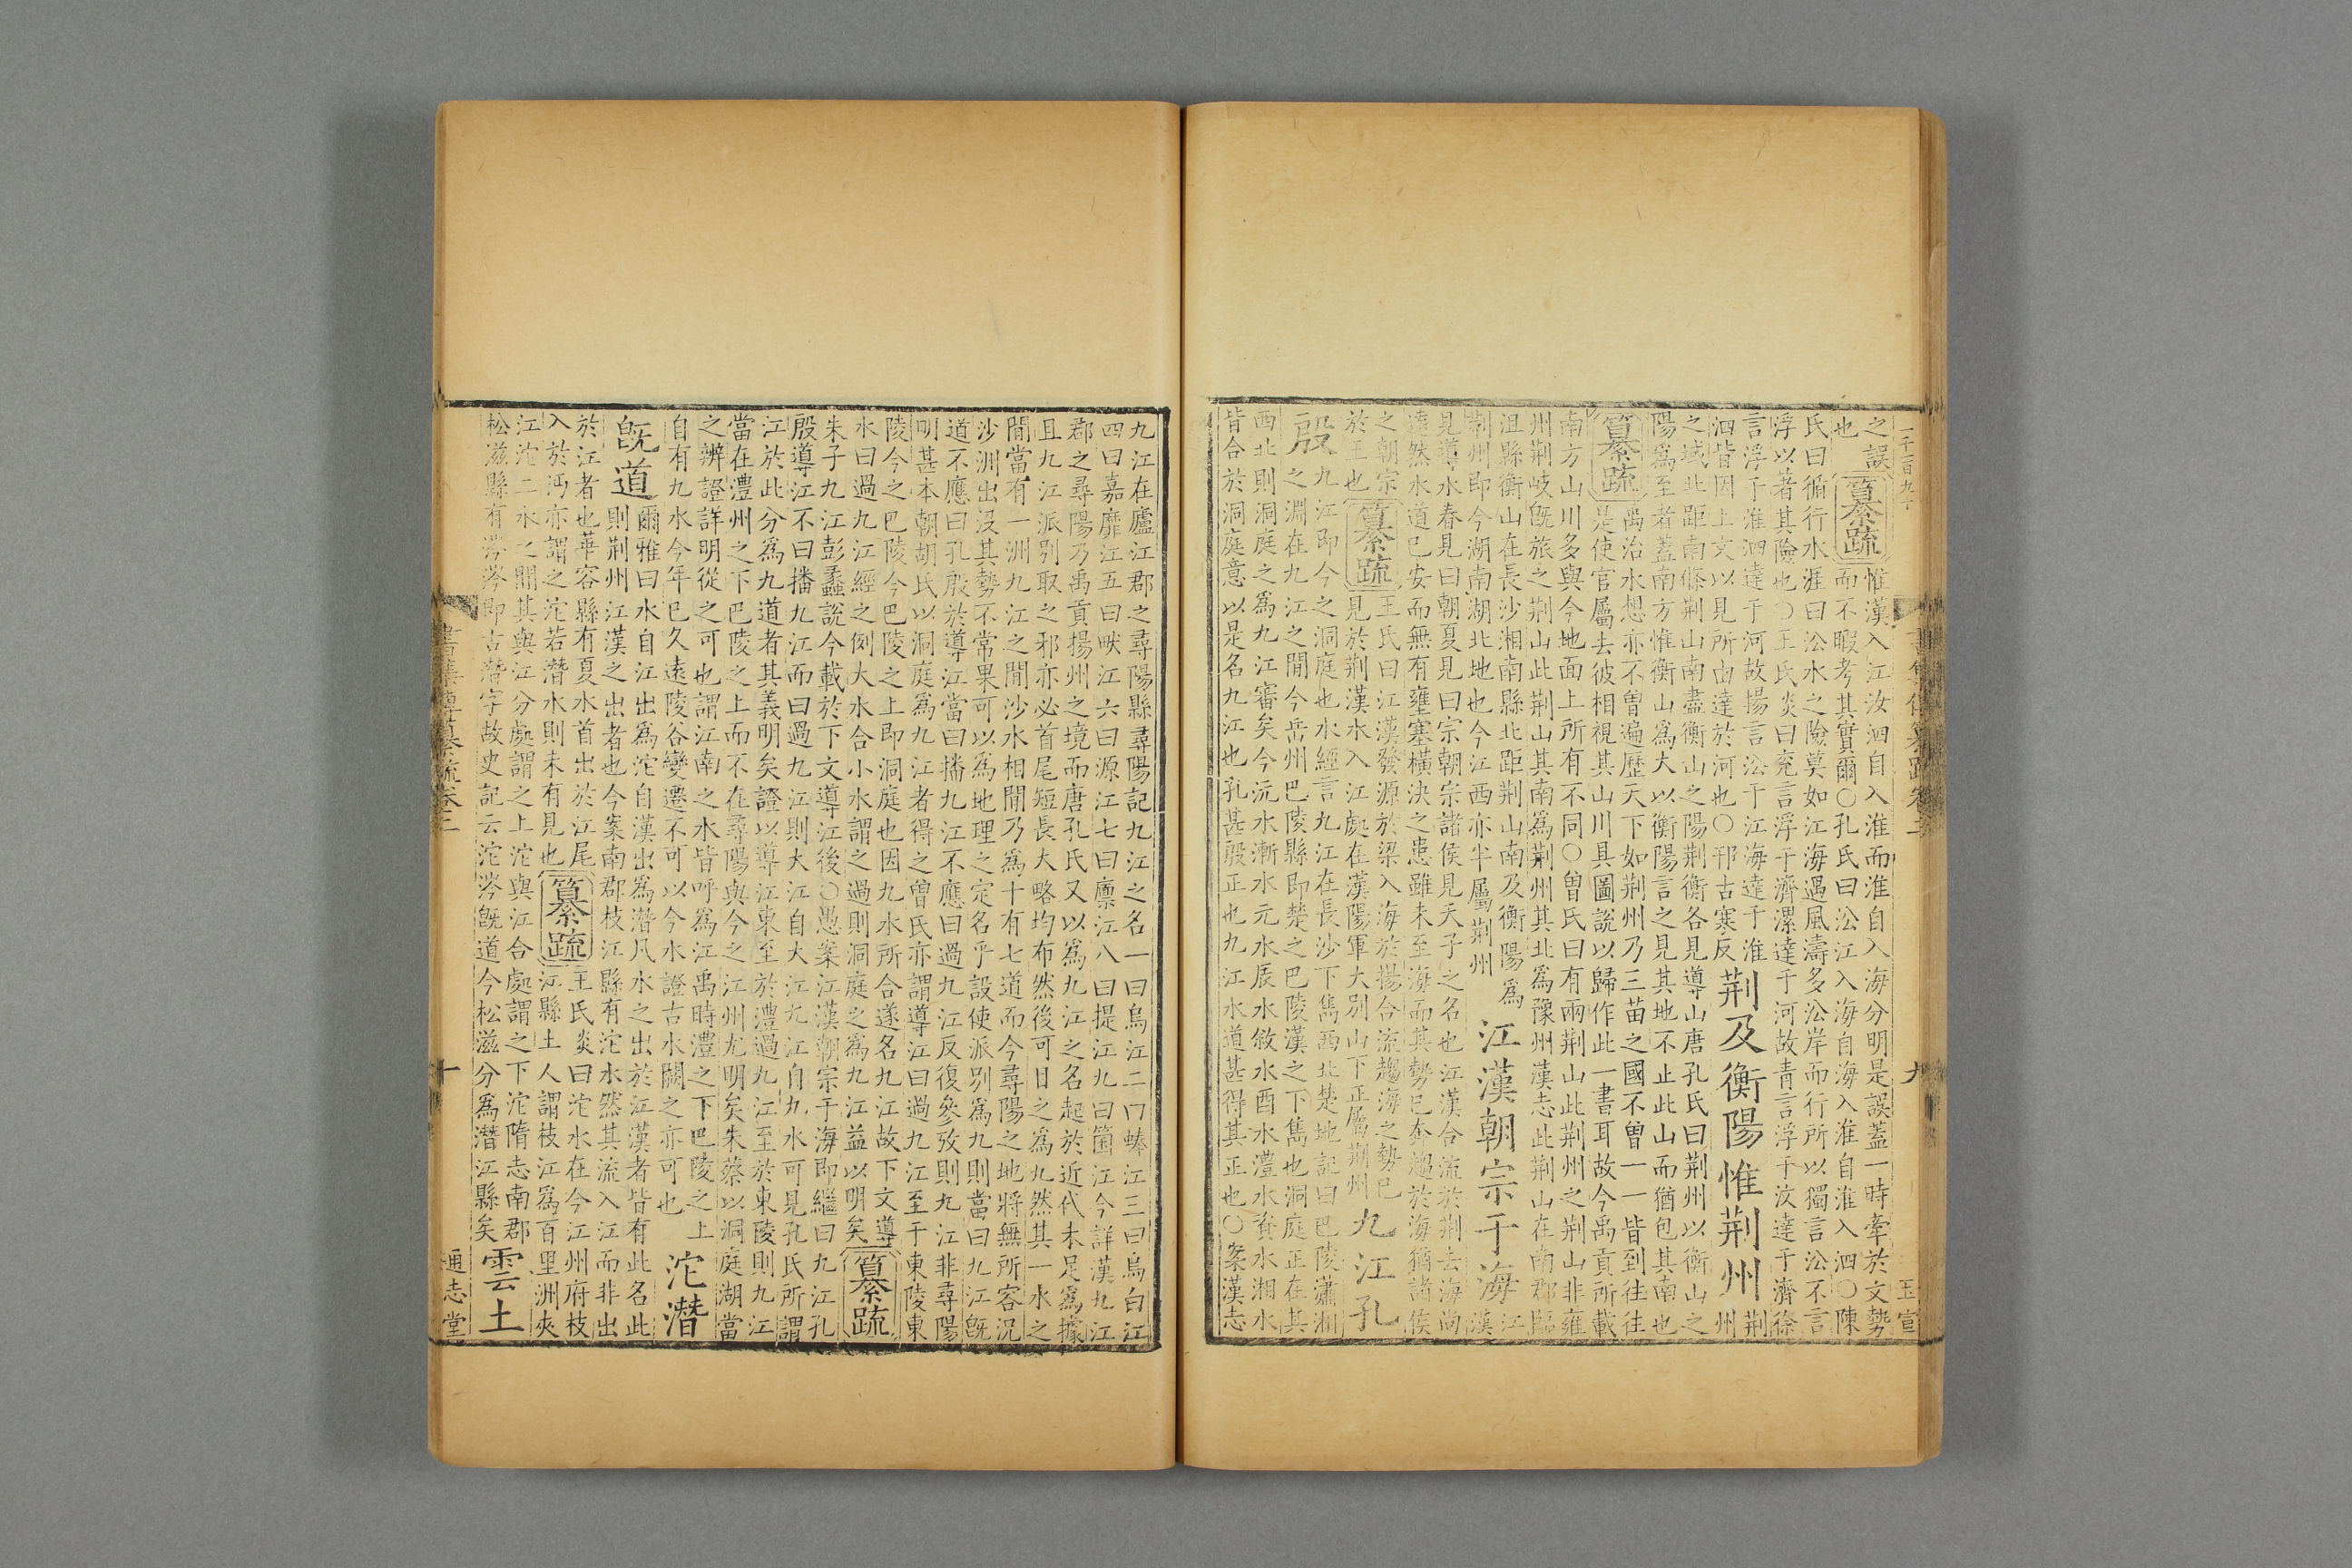 之誤纂疏惟漢入江汝泗自入淮而淮自入海分明是誤蓋一時牽於文勢
也而不暇考其實爾○孔氏曰㳂江入海自海入淮自淮入泗○陳
氏曰循行水涯曰㳂水之險莫如江海遇風濤多㳂岸而行所以獨言㳂不言
浮以著其險也○王氏炎曰兖言浮于濟漯達于河故青言浮于汶達于濟徐
言浮于淮泗達于河故揚言㳂于江海達于淮
泗皆因上文以見所由達於河也○邗古寒反
荆及衡陽惟荆州
荆州
之域北距南條荆山南盡衡山之陽荆衡各見導山唐孔氏曰荆州以衡山之
陽爲至者蓋南方惟衡山爲大以衡陽言之見其地不止此山而猶包其南也
纂疏禹治水想亦不曾遍歷天下如荆州乃三苗之國不曾一一皆到往往
是使官屬去彼相視其山川具圖說以歸作此一書耳故今禹貢所載
南方山川多與今地面上所有不同○曾氏曰有兩荆山此荆州之荆山非雍
州荆岐旣旅之荆山此荆山其南爲荆州其北爲豫州漢志此荆山在南郡臨
沮縣衡山在長沙湘南縣北距荆山南及衡陽爲
荆州即今湖南湖北地也今江西亦半屬荆州
江漢朝宗于海
江漢
見導水春見曰朝夏見曰宗朝宗諸侯見天子之名也江漢合流於荆去海尚
遠然水道已安而無有壅塞橫決之患雖未至海而其勢已奔趨於海猶諸侯
之朝宗纂疏王氏曰江漢發源於梁入海於揚合流趨海之勢已
於王也見於荆漢水入江處在漢陽軍大別山下正屬荆州
九江孔
殷
九江即今之洞庭也水經言九江在長沙下雋西北楚地記曰巴陵瀟湘
之淵在九江之間今岳州巴陵縣即楚之巴陵漢之下雋也洞庭正在其
西北則洞庭之爲九江審矣今沅水漸水元水辰水敘水酉水澧水資水湘水
皆合於洞庭意以是名九江也孔甚殷正也九江水道甚得其正也○案漢志
九 玉宣
九江在廬江郡之尋陽縣尋陽記九江之名一曰烏江二曰蜯江三曰烏白江
四曰嘉靡江五曰畎江六曰源江七曰廩江八曰提江九曰箘江今詳漢九江
郡之尋陽乃禹貢揚州之境而唐孔氏又以爲九江之名起於近代未足爲據
且九江派別取之邪亦必首尾短長大略均布然後可目之爲九然其一水之
間當有一洲九江之間沙水相間乃爲十有七道而今尋陽之地將無所容況
沙洲出沒其勢不常果可以爲地理之定名乎設使派別爲九則當曰九江旣
道不應曰孔殷於導江當曰播九江不應曰過九江反復參攷則九江非尋陽
明甚本朝胡氏以洞庭爲九江者得之曾氏亦謂導江曰過九江至于東陵東
陵今之巴陵今巴陵之上即洞庭也因九水所合遂名九江故下文導
水曰過九江經之例大水合小水謂之過則洞庭之爲九江益以明矣
纂疏
朱子九江彭蠡說今載於下文導江後○愚案江漢朝宗于海即繼曰九江孔
殷導江不曰播九江而曰過九江則大江自大江九江自九水可見孔氏所謂
江於此分爲九道者其義明矣證以導江東至於澧過九江至於東陵則九江
當在澧州之下巴陵之上而不在尋陽與今之江州尤明矣朱蔡以洞庭湖當
之辨證詳明從之可也謂江南之水皆呼爲江禹時澧之下巴陵之上
自有九水今年已久遠陵谷變遷不可以今水證古水闕之亦可也
沱潛
旣道
爾雅曰水自江出爲沱自漢出爲潛凡水之出於江漢者皆有此名此
則荆州江漢之出者也今案南郡枝江縣有沱水然其流入江而非出
於江者也華容縣有夏水首出於江尾纂疏王氏炎曰沱水在今江州府枝
入於沔亦謂之沱若潛水則未有見也江縣土人謂枝江爲百里洲夾
江沱二水之間其與江分處謂之上沱與江合處謂之下沱隋志南郡
松滋縣有涔涔即古潛字故史記云沱涔旣道今松滋分爲潛江縣矣
雲土
書集傳纂疏卷二 十 通志堂